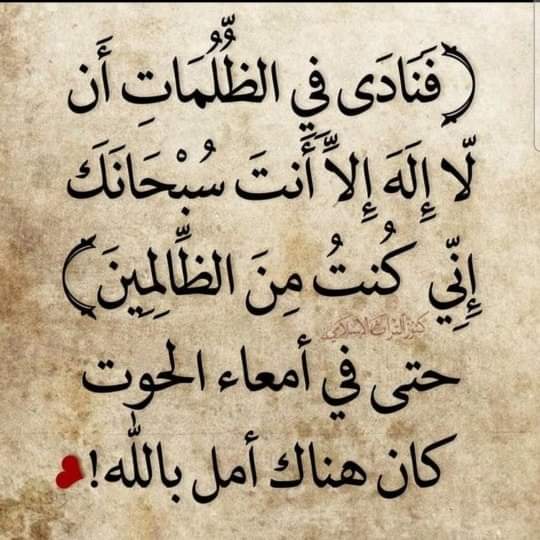 ﴿فَنَادَى فِي الظُّلُمَاتِ أَن
لَّا إِلَهَ إِلَّا أَنتَ سُبْحَانَكَ
إِنِّي كُنتُ مِنَ الظَّالِمِينَ﴾
كنوز التراث الإسلامي
حتى في أمعاء الحوت
كان هناك أمل بالله!